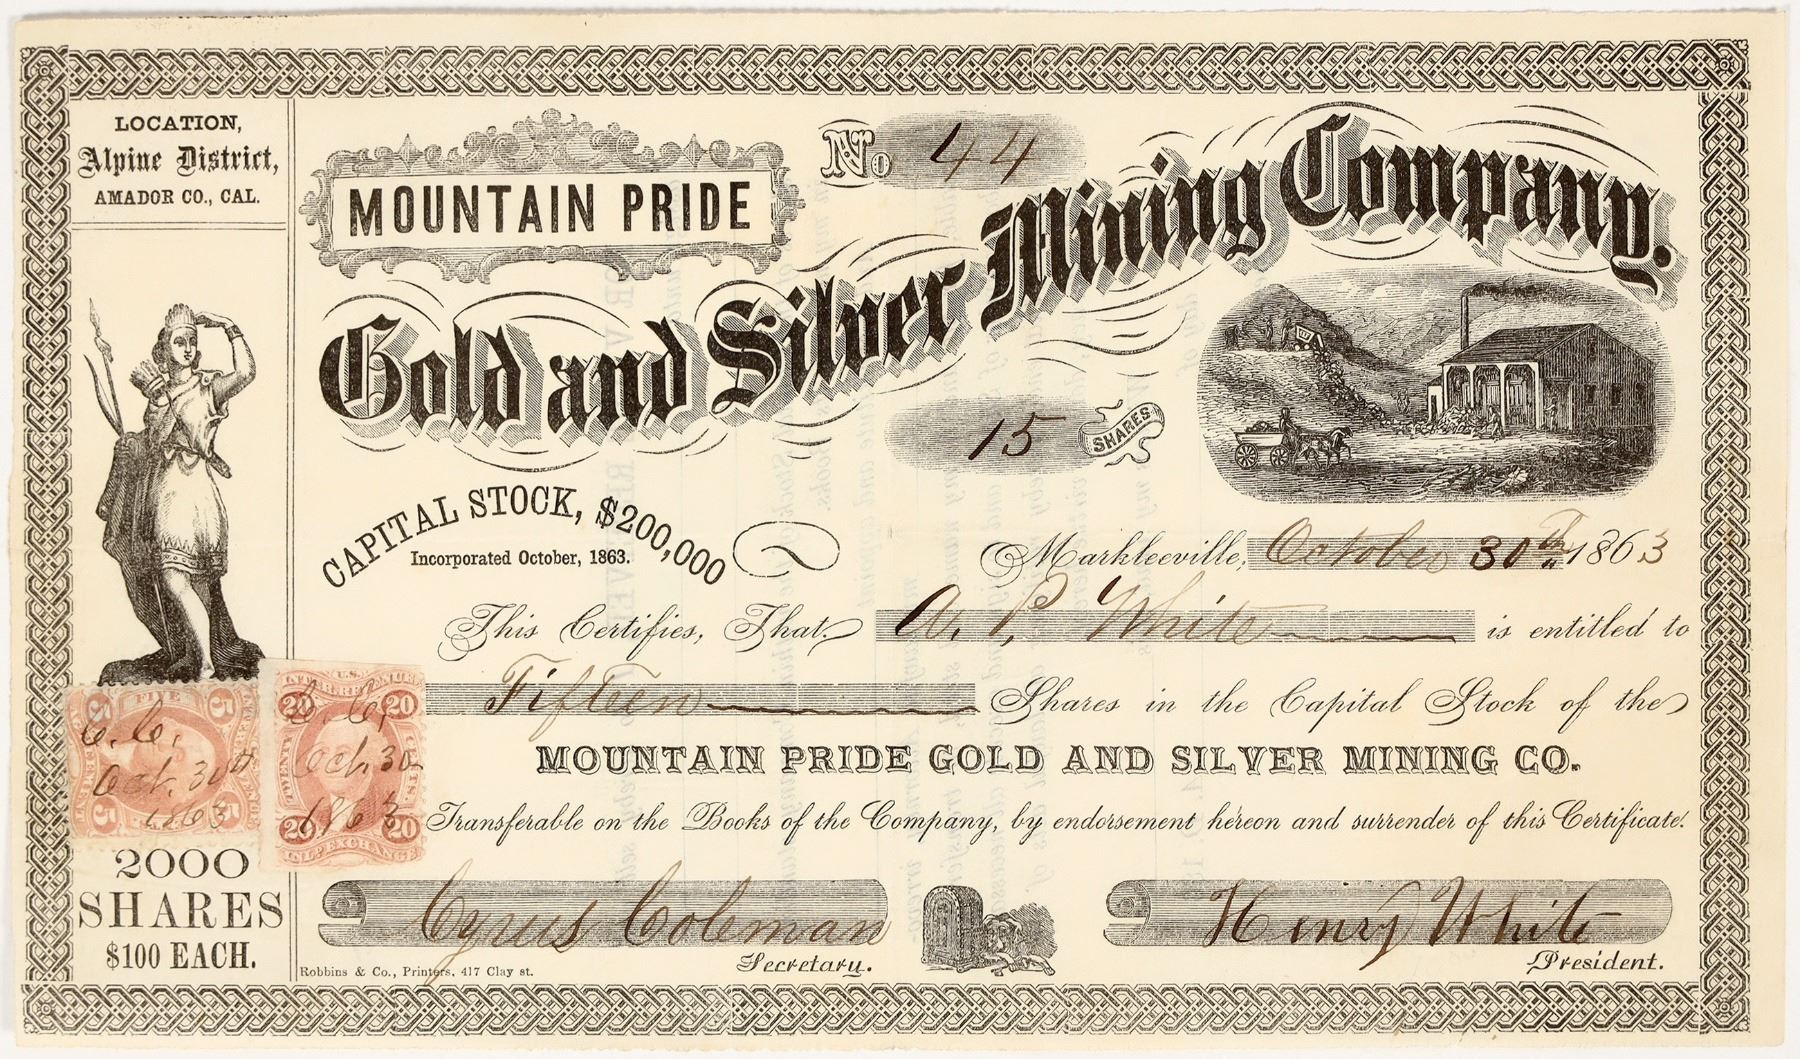 LOCATION,
Alpine District,
AMADOR CO., CAL.
MOUNTAIN PRIDE
No 44
Gold and Silver Mining Company.
15 SHARES
CAPITAL STOCK, $200,000
Incorporated October, 1863.
Markleeville, October 30th 1863
This Certifies, That A. P. White is entitled to
Fifteen Shares in the Capital Stock of the
MOUNTAIN PRIDE GOLD AND SILVER MINING CO.
Transferable on the Books of the Company, by endorsement hereon and surrender of this Certificate.
FIVE
5 5
C. C.
Oct. 30th
1863
5 5
U.S.
20 20
C. C.
TWENTY
Oct. 30
CTS.
1863
20 20
INL. EXCHANGE
2000
SHARES
$100 EACH.
Cyrus Coleman
Secretary.
Henry White
President.
Robbins & Co., Printers, 417 Clay st.